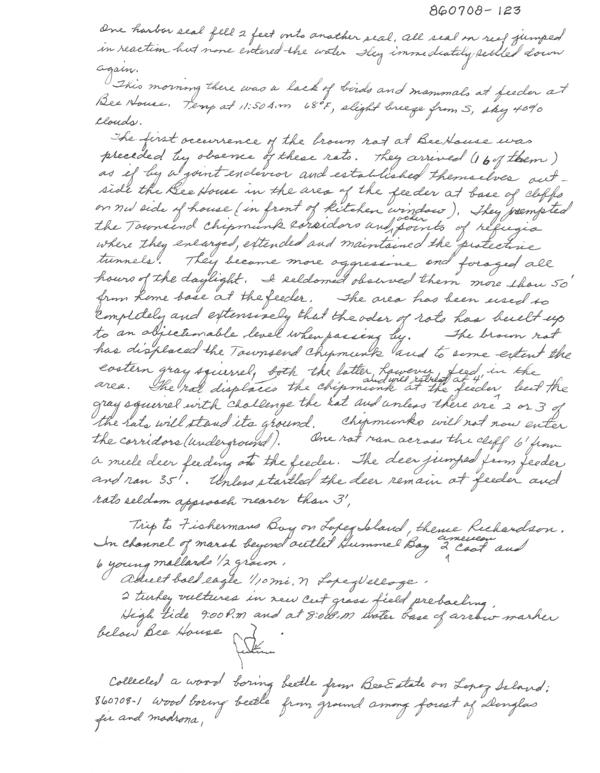 860708-123
One harbor seal fell 2 feet onto another seal. All seal on reef jumped
in reaction but none entered the water. They immediately settled down
again.
This morning there was a lack of birds and mammals at feeder at
Bee House. Temp at 11:50 A.m 68°F, slight breeze from S, sky 40%
clouds.
The first occurrence of the brown rat at Bee House was
preceded by absence of these rats. They arrived (16 of them)
as if by a joint endeavor and established themselves out-
side the Bee House in the area of the feeder at base of cliffs
on NW side of house (in front of kitchen window). They preempted
the Townsend Chipmunk corridors and other points of refugia
where they enlarged, extended and maintained the protective
tunnels. They become more aggressive and foraged all
hours of the daylight. I seldomed observed them more than 50'
from home base at the feeder. The area has been used so
completely and extensively that the oder of rats has built up
to an objectionable level when passing by. The brown rat
has displaced the Townsend Chipmunk and to some extent the
eastern gray squirrel, both the latter, however, feed in the
area. The rat displaces the chipmunk at the feeder but the
and will retreat at 4'
gray squirrel with challenge the rat and unless there are 2 or 3 of
the rats will stand its ground. Chipmunks will not now enter
the corridors (underground). One rat ran across the cliff 6' from
a mule deer feeding at the feeder. The deer jumped from feeder
and ran 35'. Unless startled the deer remain at feeder and
rats seldom approach nearer than 3'.
Trip to Fishermans Bay on Lopez Island, thence Richardson.
In channel of marsh beyond outlet Hummel Bay 2 american coot and
6 young mallards 1/2 grown.
Adult bald eagle 1/10 mi. N Lopez Village.
2 turkey vultures in new cut grass field
High tide 9:00 P.m and at 8:00 P.M water base of arrow marker
below Bee House
Collected a wood boring beetle from Bee Estate on Lopez Island;
860708-1 wood boring beetle from ground among forest of Douglas
fir and madrona,